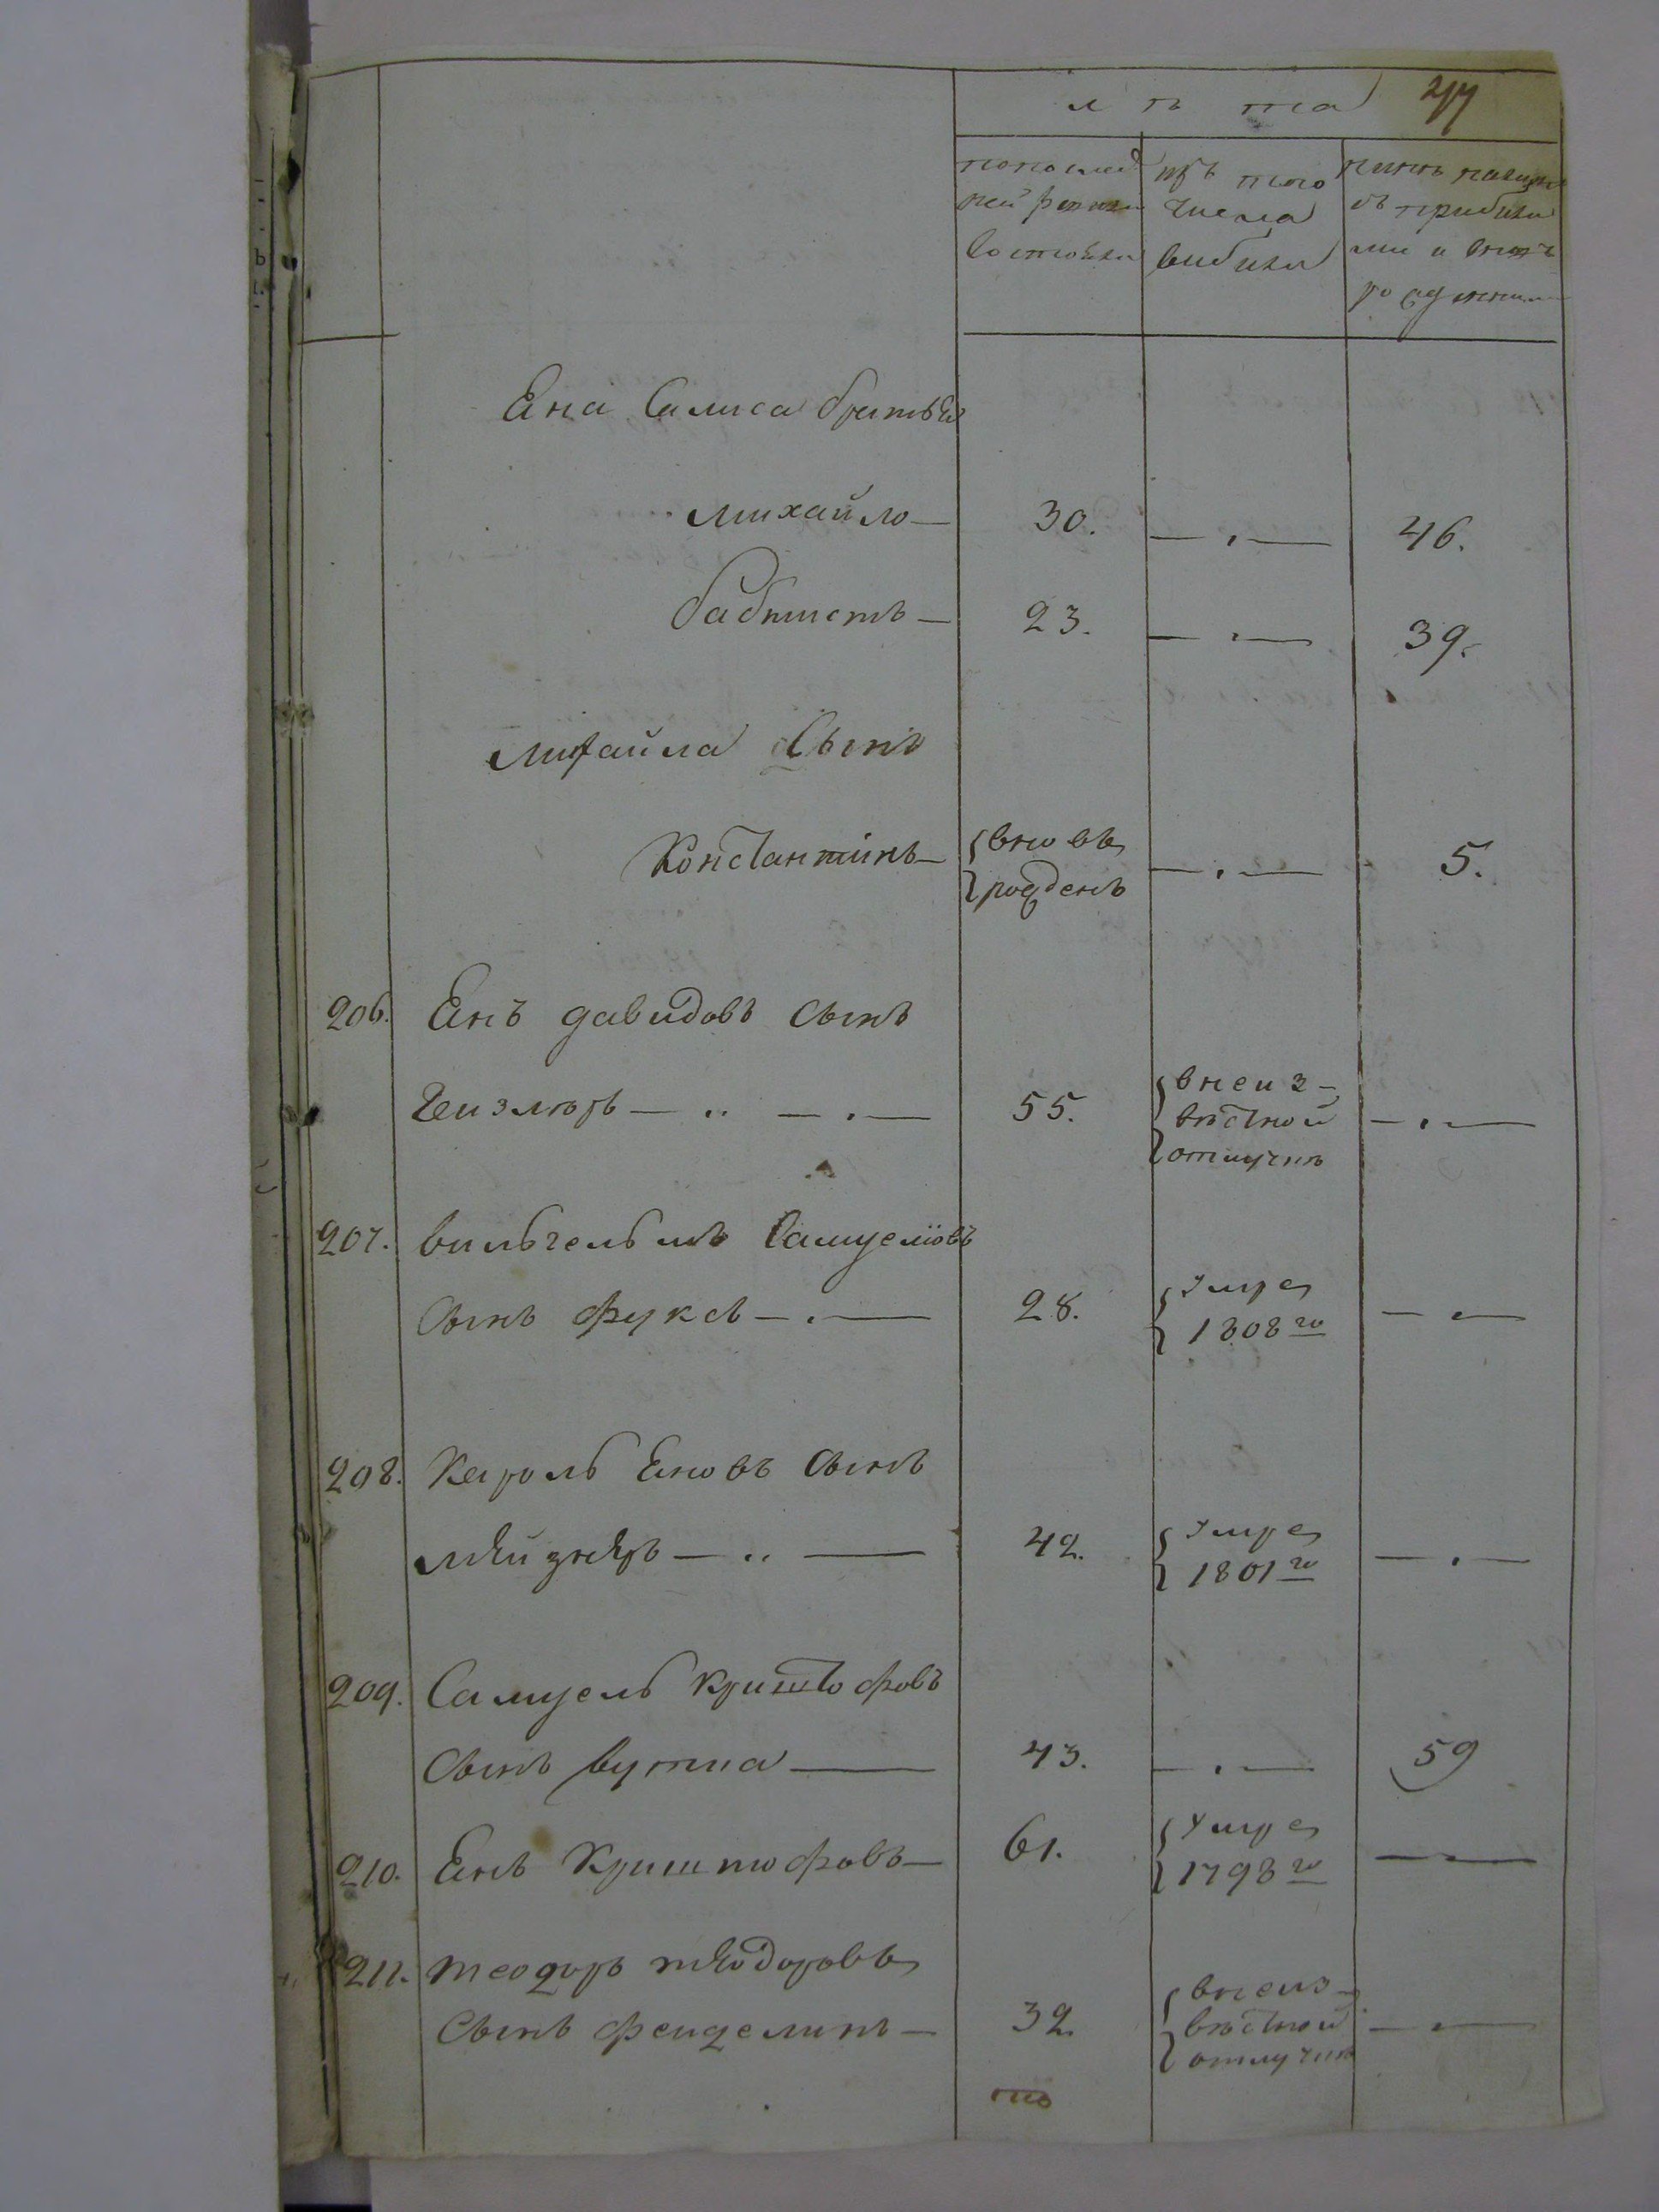 лѣта
217
по послед
ней ревизи
состояли
изъ того
числа
выбили
нынѣ налицо
съ прибыли
ми и внов
рожденними
Ена Салиса братья
Михайло — 30. — . — 46.
Баблистъ — 23. — . — 39.
Михайла Сынъ
Константинъ — вновь рожденъ — . — 5.
206. Енъ Давидовъ Сынъ
Гензлеръ — .. — . — 55. внеиз-
вѣстной
отлучкѣ — . —
207. Вильгельмъ Самуеліовъ
Сынъ Фуксъ — . — 28. Умре
1808го — . —
208. Кароль Еновъ Сынъ
Мейзнеръ — .. — 42. Умре
1801го — . —
209. Самуель Криштофовъ
Сынъ Вутта — 43. — . — 59
210. Енъ Криштофовъ — 61. Умре
1798го —
211. Теодоръ Теодоровъ
Сынъ Фенделинъ — 32. внеиз-
вѣстной
отлучкѣ — . —